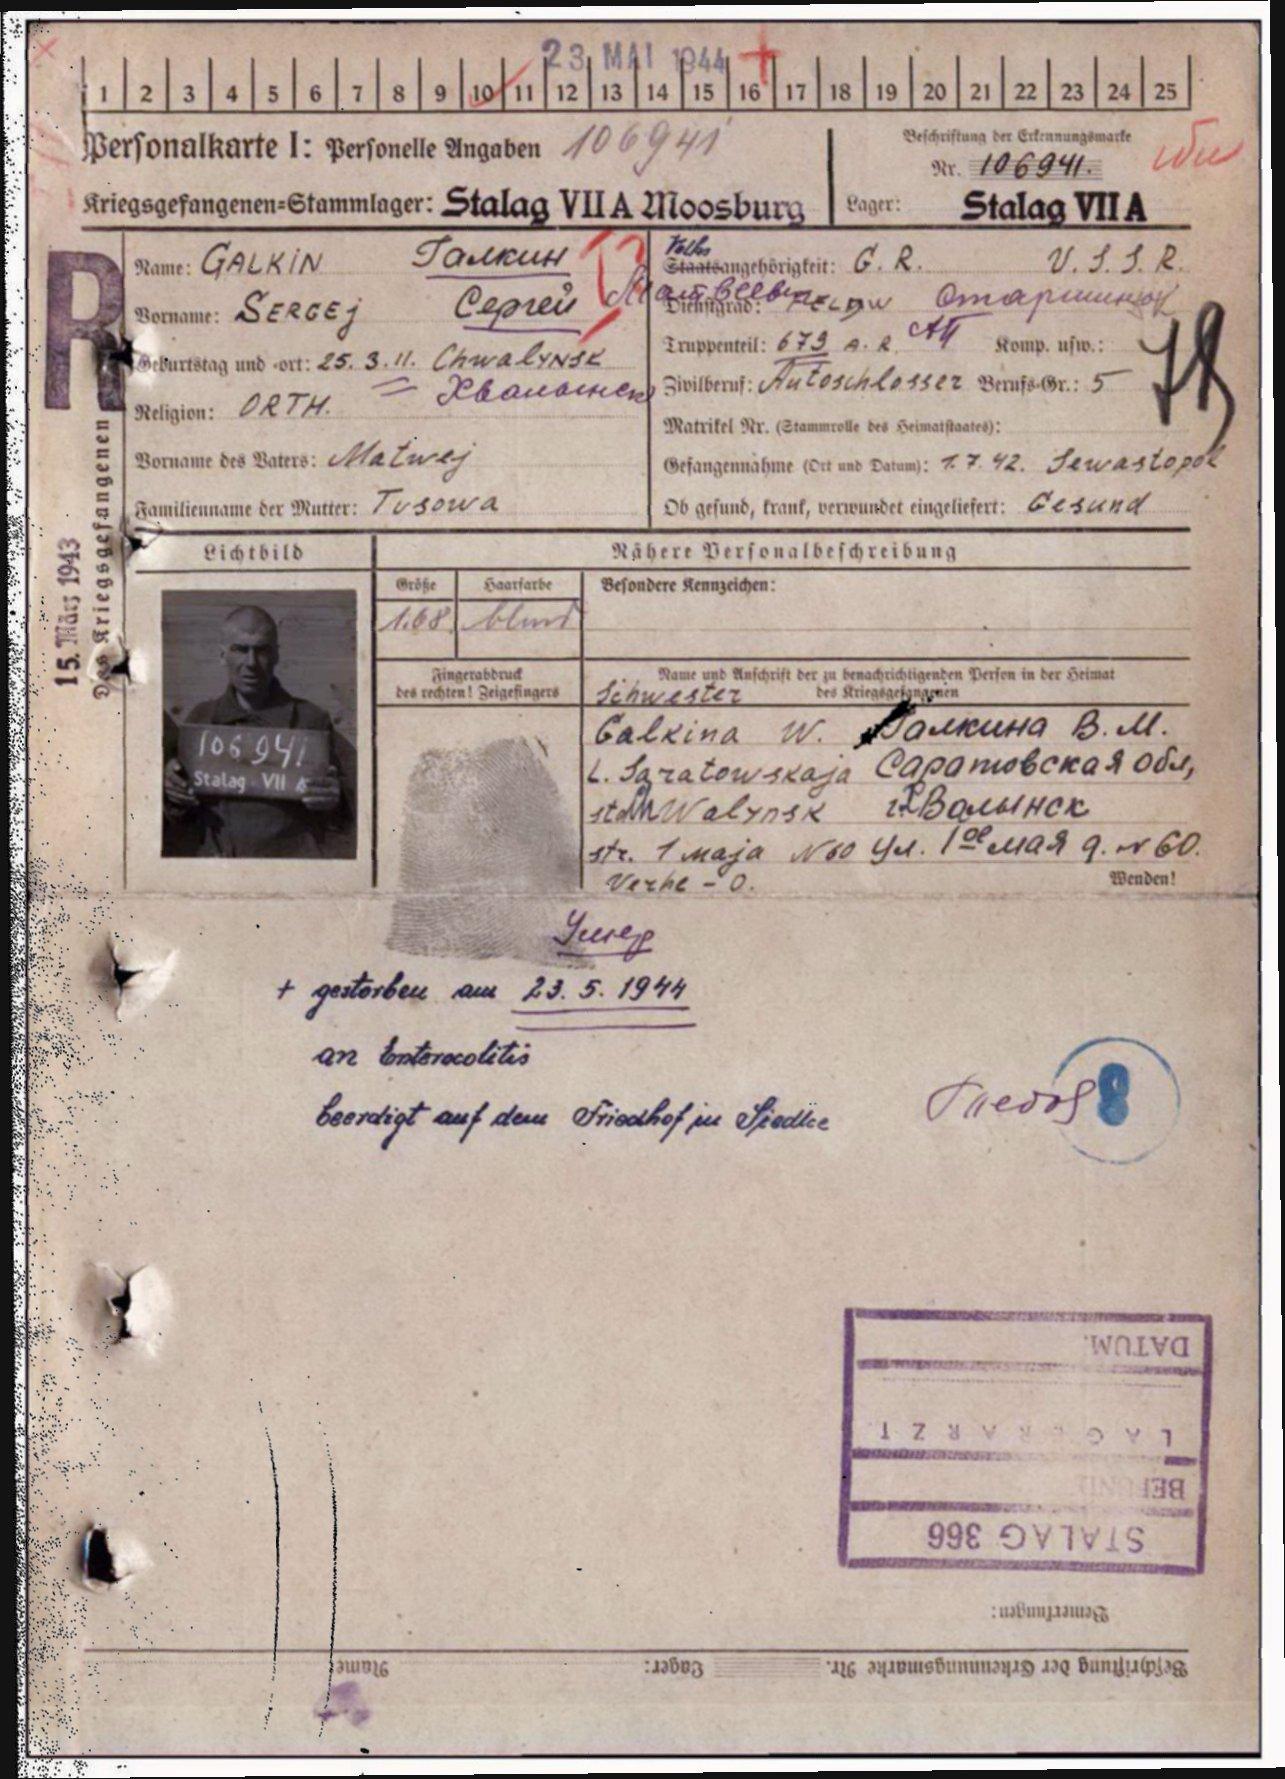 23. MAI 1944
1 2 3 4 5 6 7 8 9 10 11 12 13 14 15 16 17 18 19 20 21 22 23 24 25
Personalkarte I: Personelle Angaben 106941
Beschriftung der Erkennungsmarke
Nr. 106941.
Kriegsgefangenen-Stammlager: Stalag VII A Moosburg
Lager: Stalag VII A
R
Des Kriegsgefangenen
15. März 1943
Name: GALKIN Галкин
Vorname: SERGEJ Сергей Матвеевич
Geburtstag und -ort: 25.3.11. Chwalynsk
Хвалынск
Religion: ORTH.
Vorname des Vaters: Matwej
Familienname der Mutter: Tusowa
Volks
Staatsangehörigkeit: G. R. U.S.S.R.
Dienstgrad: FELDW
Truppenteil: 673 A. R. АП Komp. usw.:
Zivilberuf: Autoschlosser Berufs-Gr.: 5
Matrikel Nr. (Stammrolle des Heimatstaates):
Gefangennahme (Ort und Datum): 1.7.42. Sewastopol
Ob gesund, krank, verwundet eingeliefert: Gesund
Lichtbild
Nähere Personalbeschreibung
Größe
Haarfarbe
Besondere Kennzeichen:
1.68 blond
106941
Stalag VII A
Fingerabdruck
des rechten! Zeigefingers
Name und Anschrift der zu benachrichtigenden Person in der Heimat
des Kriegsgefangenen
Schwester
Galkina W. Галкина В. М.
L. Saratowskaja Саратовская обл,
Walynsk г. Волынск
str. 1 maja N 60 ул. 1ое мая д. N 60.
Wenden!
Умер
+ gestorben am 23. 5. 1944
an Enterocolitis
beerdigt auf dem Friedhof in Siedlce
8
DATUM.
LAGERARZT
BEFUND:
STALAG 366
Bemerkungen:
Beschriftung der Erkennungsmarke Nr. Lager: Name